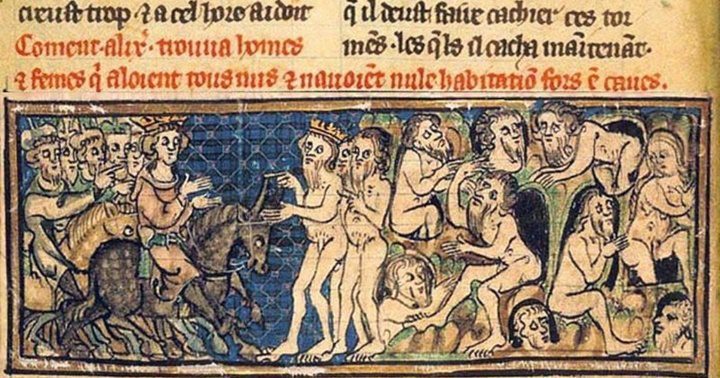 trop ⁊ a cel hore auoit
Coment. alix̓. trouua homes
q̓ il deust faire cachier ces tor
mēs. les q̓ls il cacha maītenāt.
⁊ femes q̓ aloient tous nus ⁊ nauoiēt nule habitatiō fors ē caues.